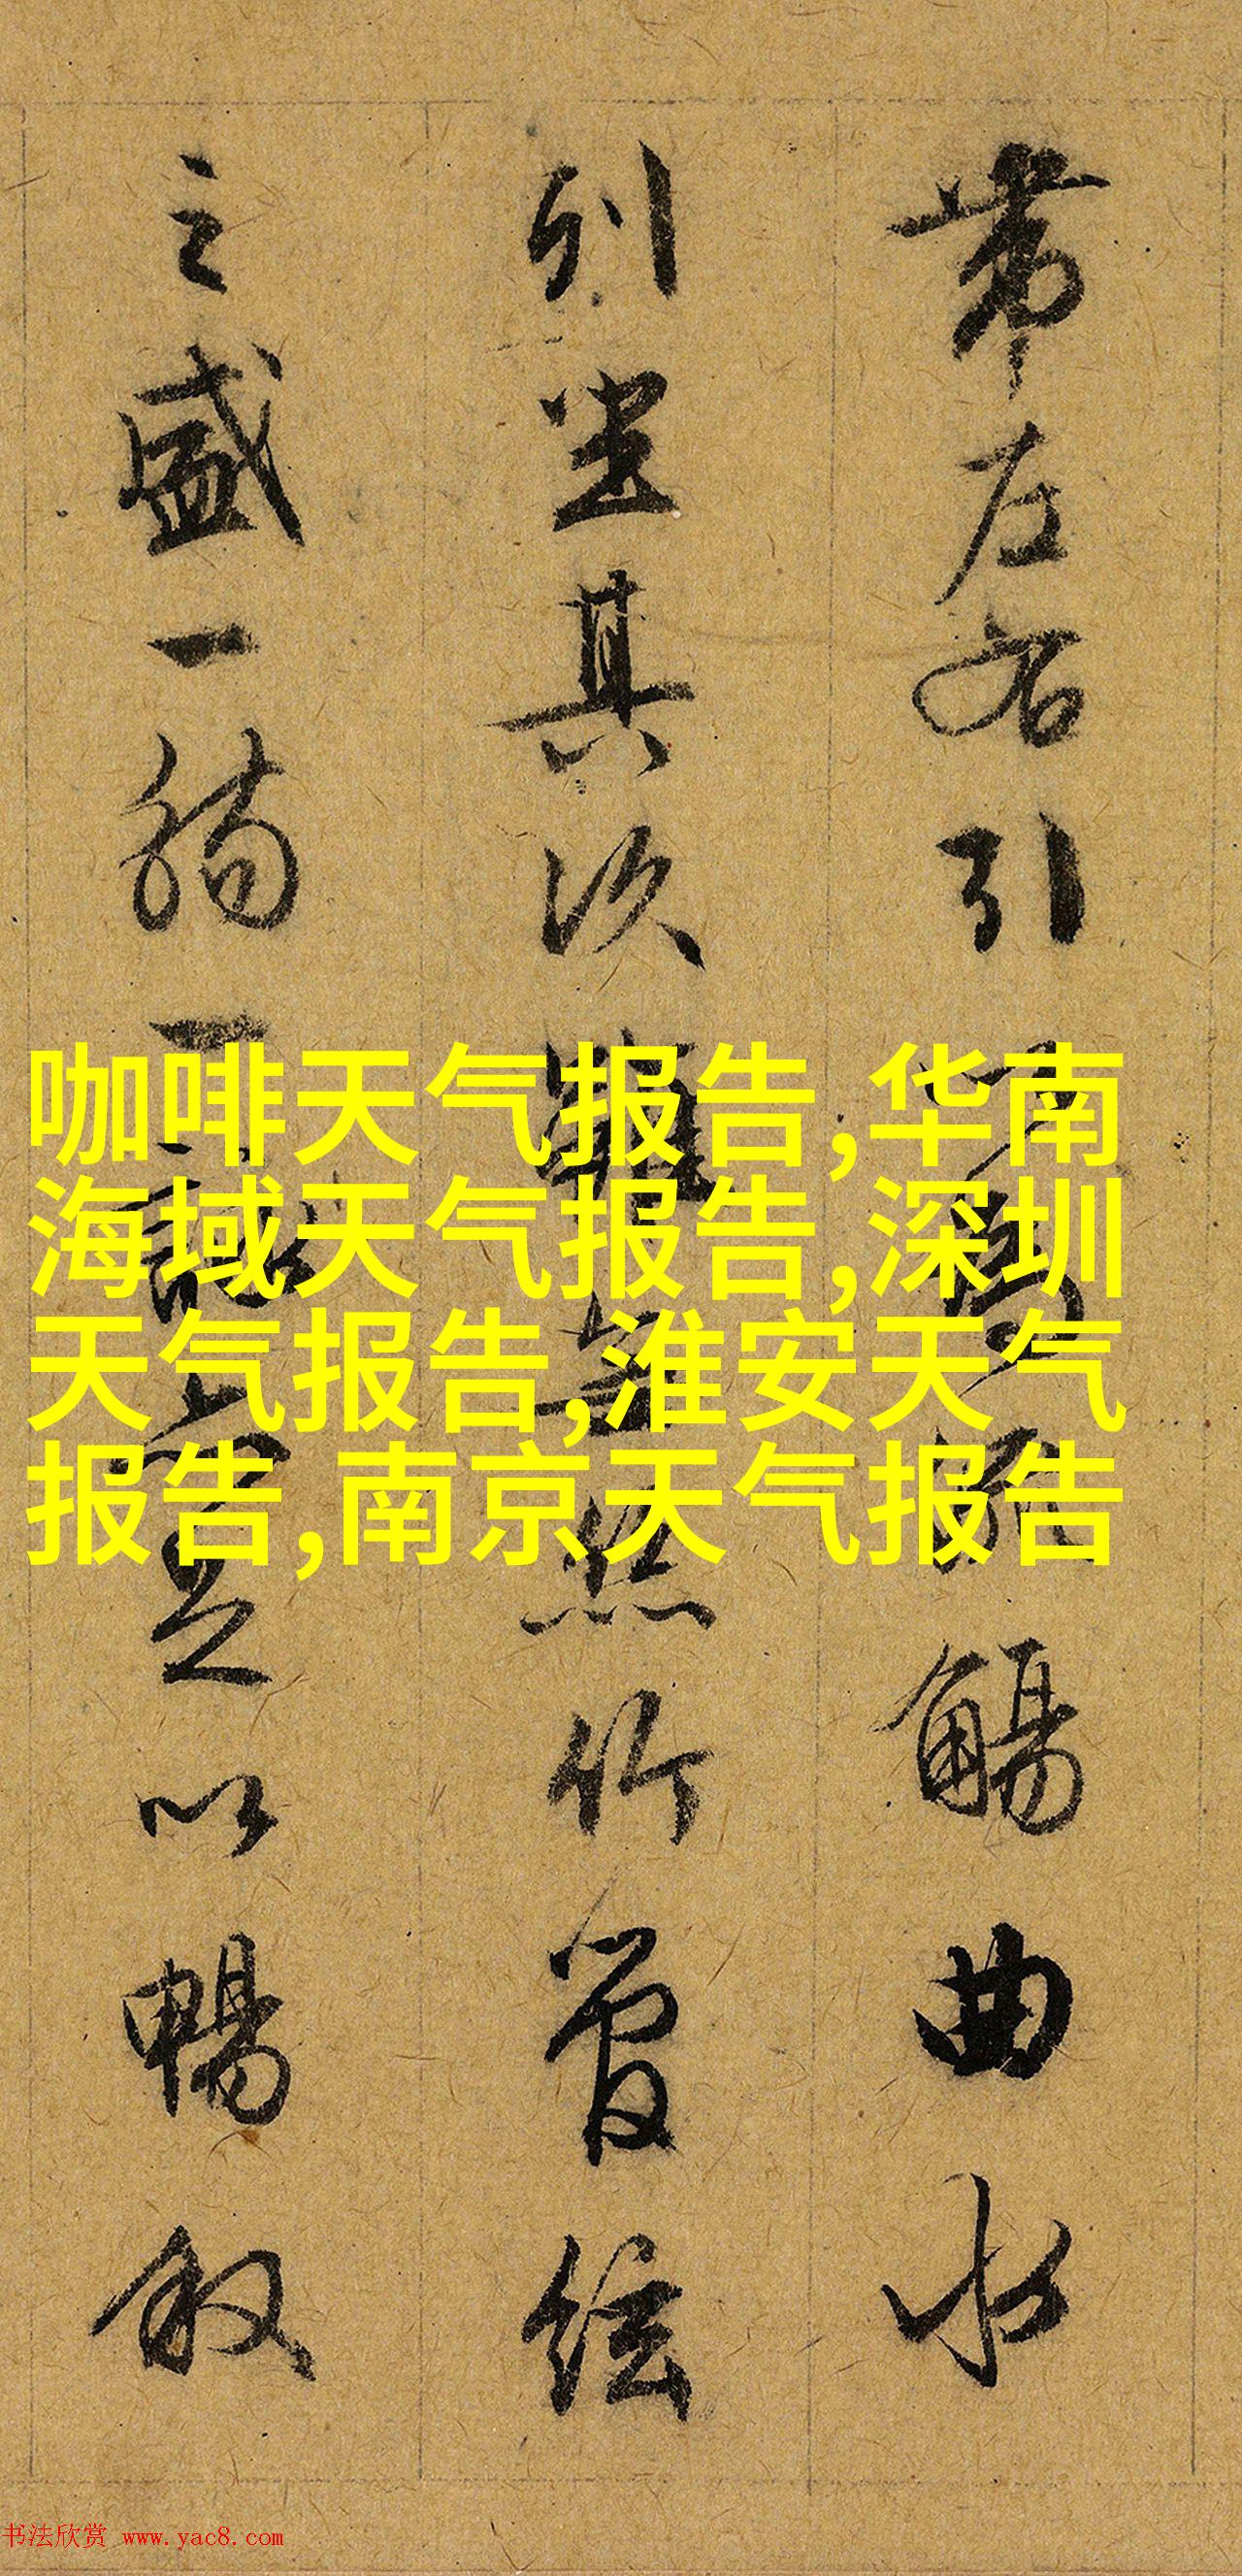 帶左右引為觴曲水
列坐其次雖無絲竹管絃
之盛一觴一詠亦足以暢敘
咖啡天气报告,华南
海域天气报告,深圳
天气报告,淮安天气
报告,南京天气报告
书法欣赏 www.yac8.com